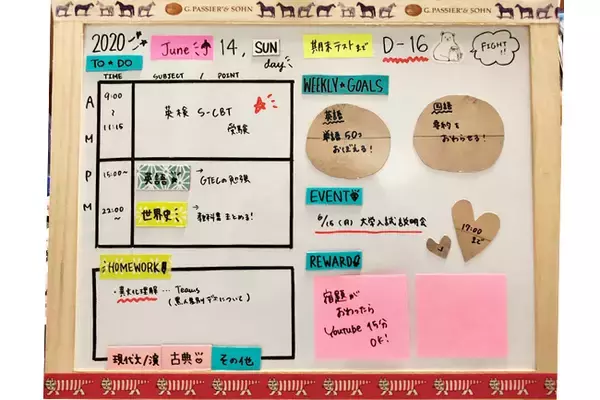 G. PASSIER & SOHN
G. PASSIER & SOHN
2020 June 14, SUN day
期末テストまで D-16
FIGHT!!
TO★DO
TIME SUBJECT / POINT
AM
9:00
~
11:15
英検 S-CBT
受験
PM
15:00~
英語
→ GTECの勉強
22:00~
世界史
→ 教科書まとめる!
HOMEWORK
・異文化理解 … Teams
(黒人差別デモについて)
現代文/演
古典
その他
WEEKLY★GOALS
英語
単語50コ
おぼえる!
国語
要約を
おわらせる!
EVENT
6/15(月) 大学入試説明会
17:00
まで
REWARD
宿題が
おわったら
Youtube 15分
OK!